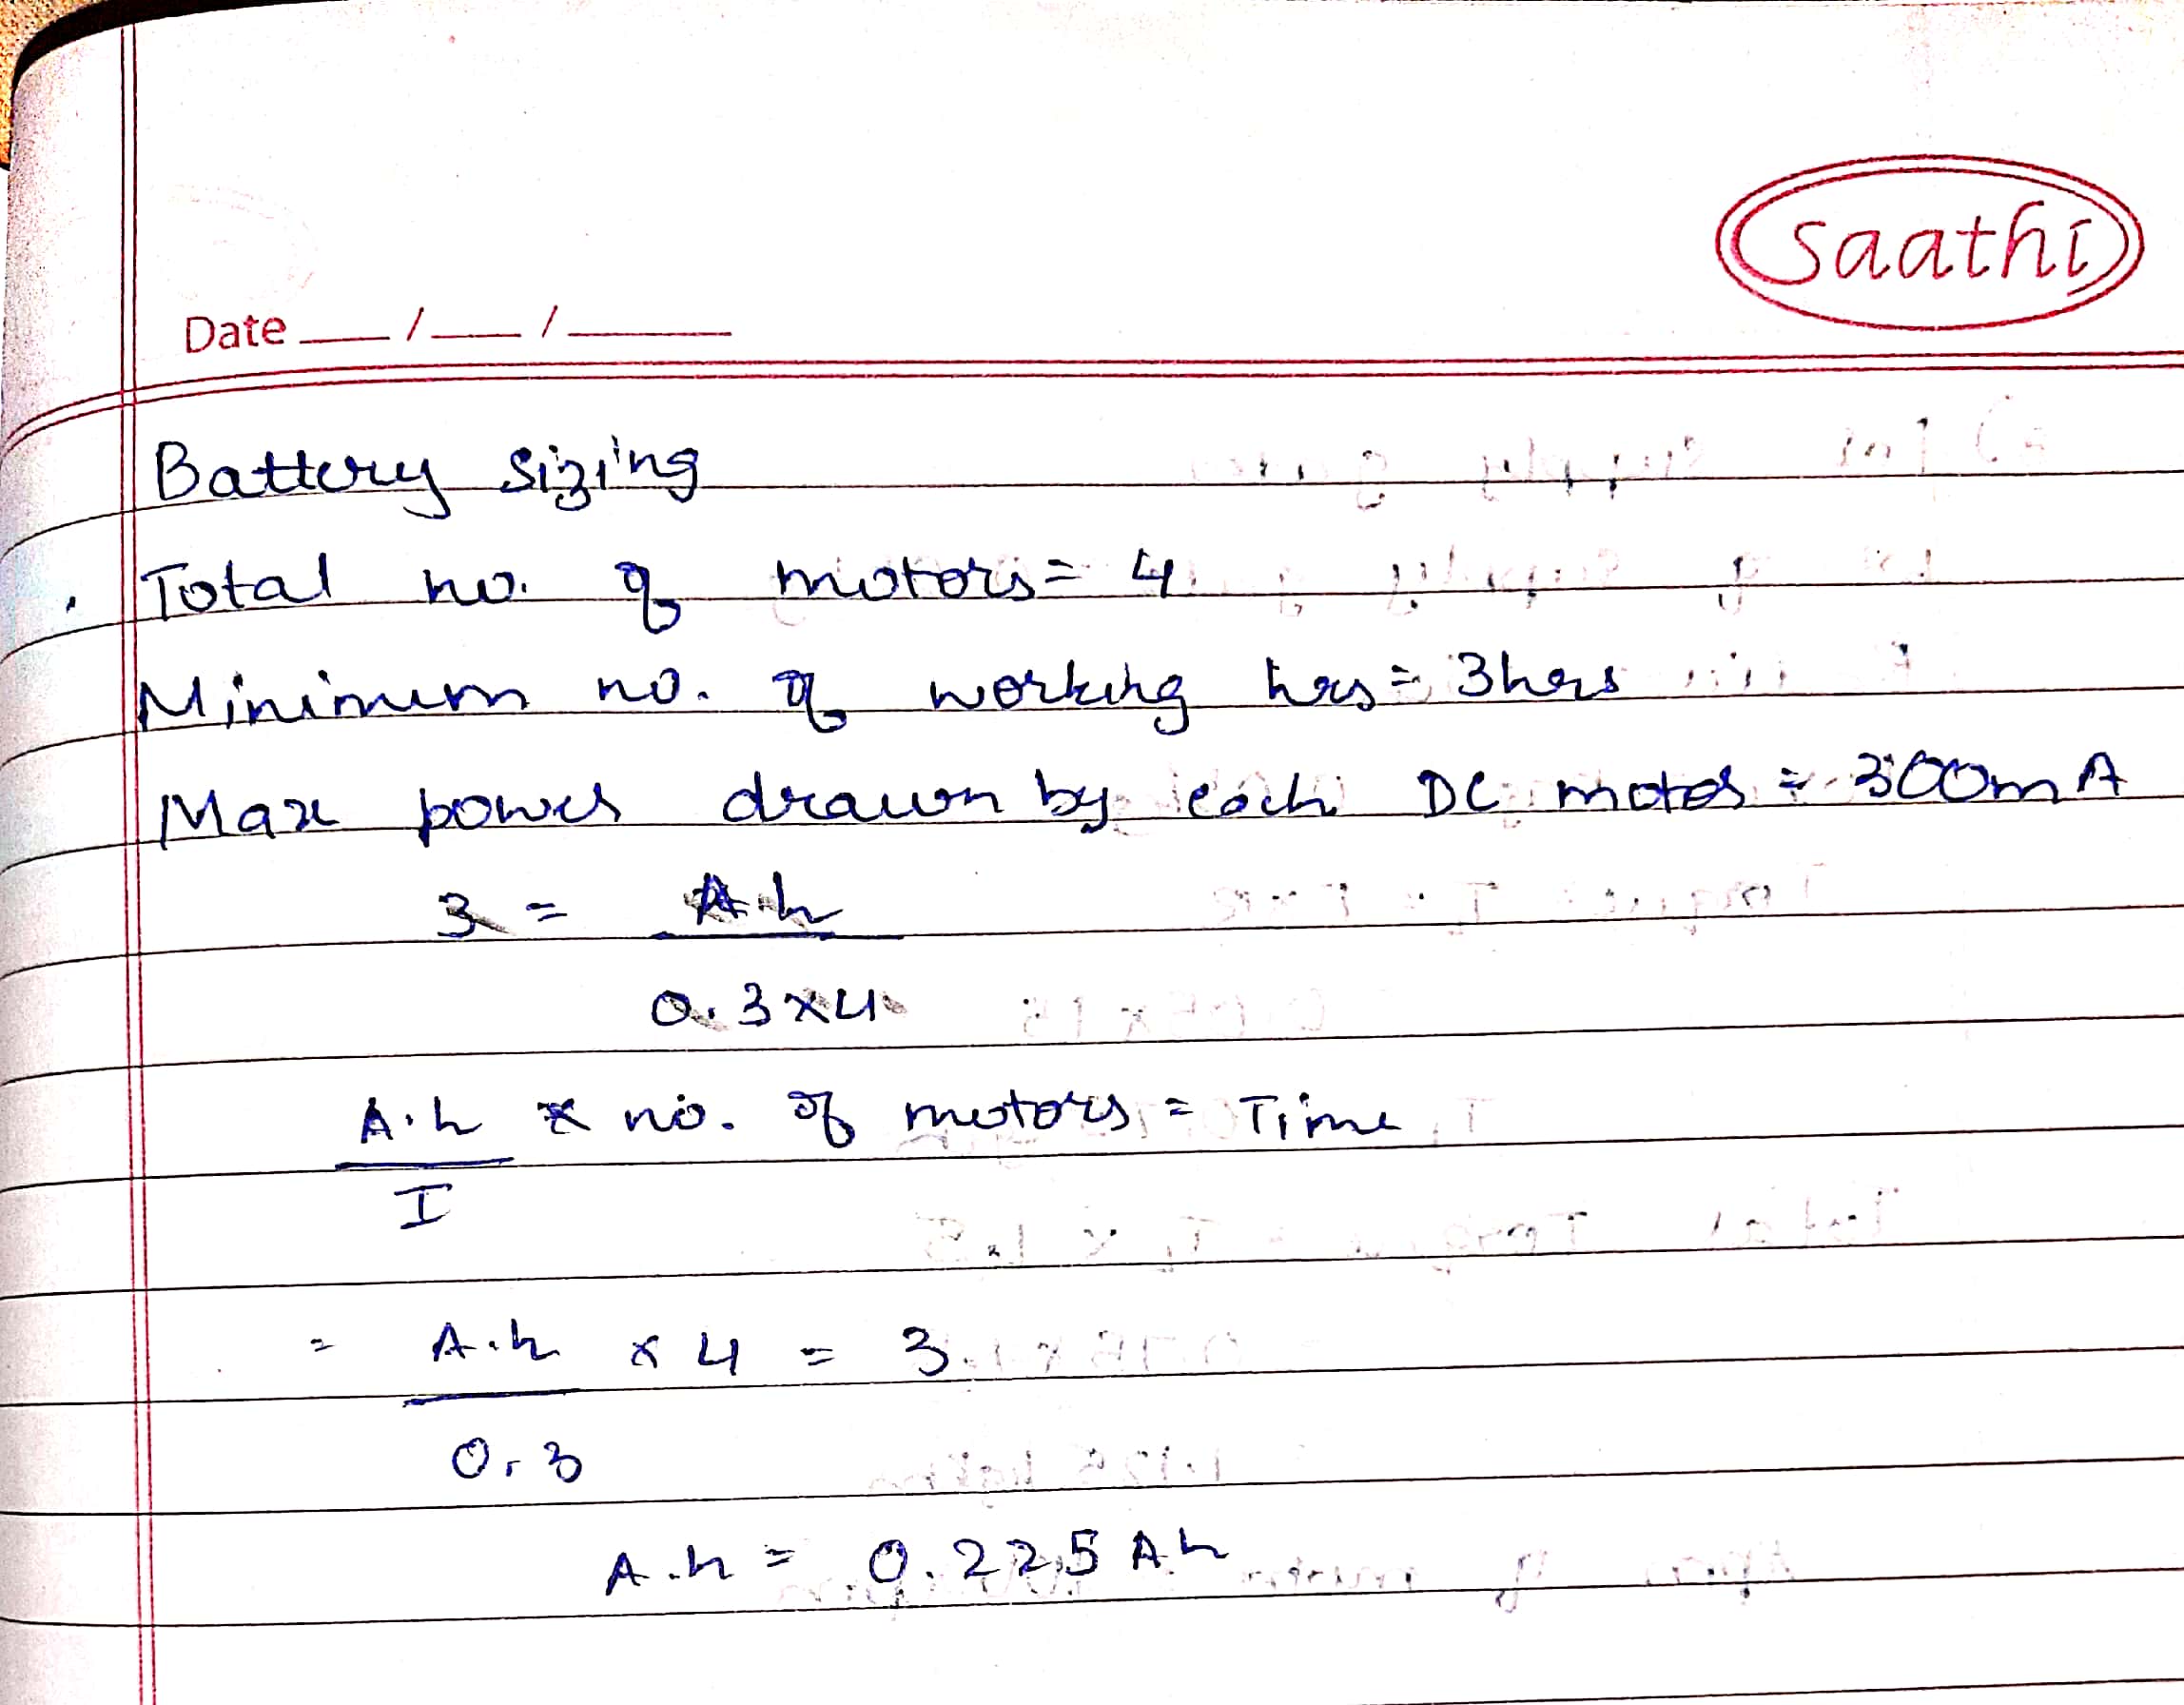 saathi
Date __/__/____
Battery sizing
Total no. of motors = 4
Minimum no. of working hrs = 3hrs
Max power drawn by each DC motor = 300mA
3 = A.h
0.3 x 4
A.h x no. of motors = Time
I
= A.h x 4 = 3
0.3
A.h = 0.225 Ah